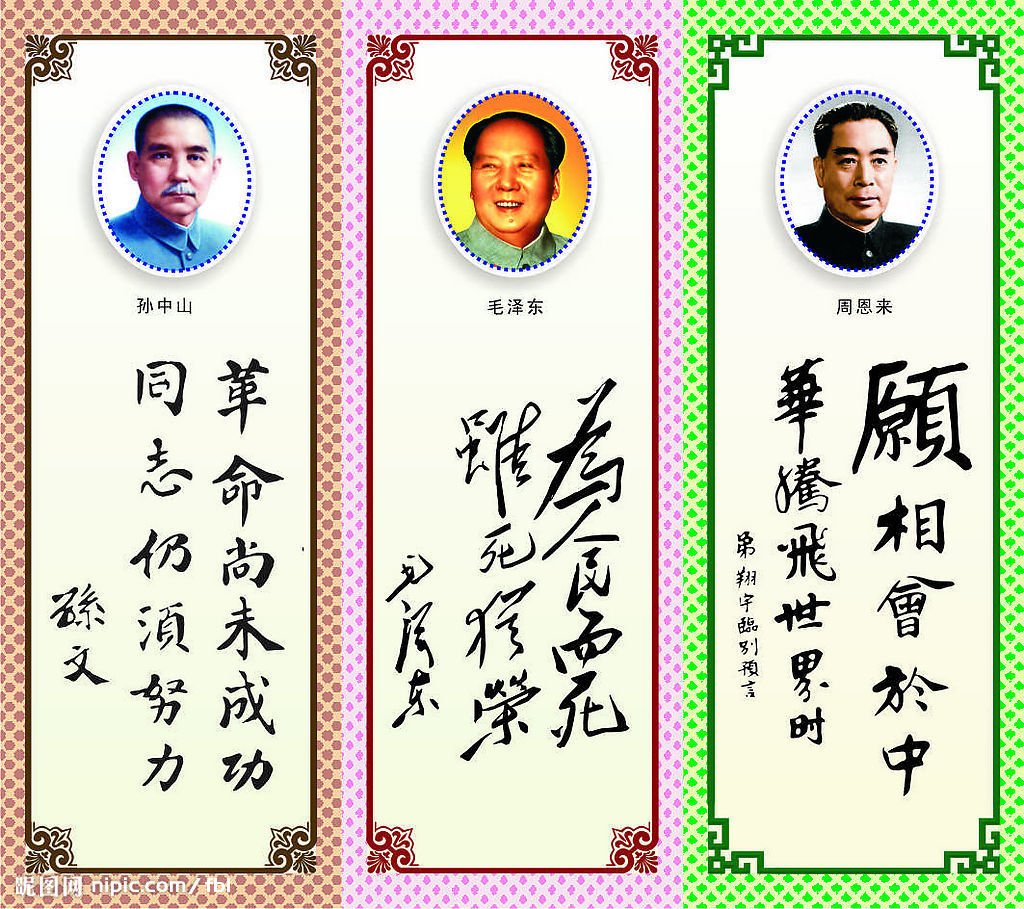 孙中山
革命尚未成功
同志仍須努力
孫文
毛泽东
為人民而死
雖死猶榮
毛泽东
周恩来
願相會於中
華騰飛世界时
弟翔宇臨别預言
昵图网 nipic.com/fbl